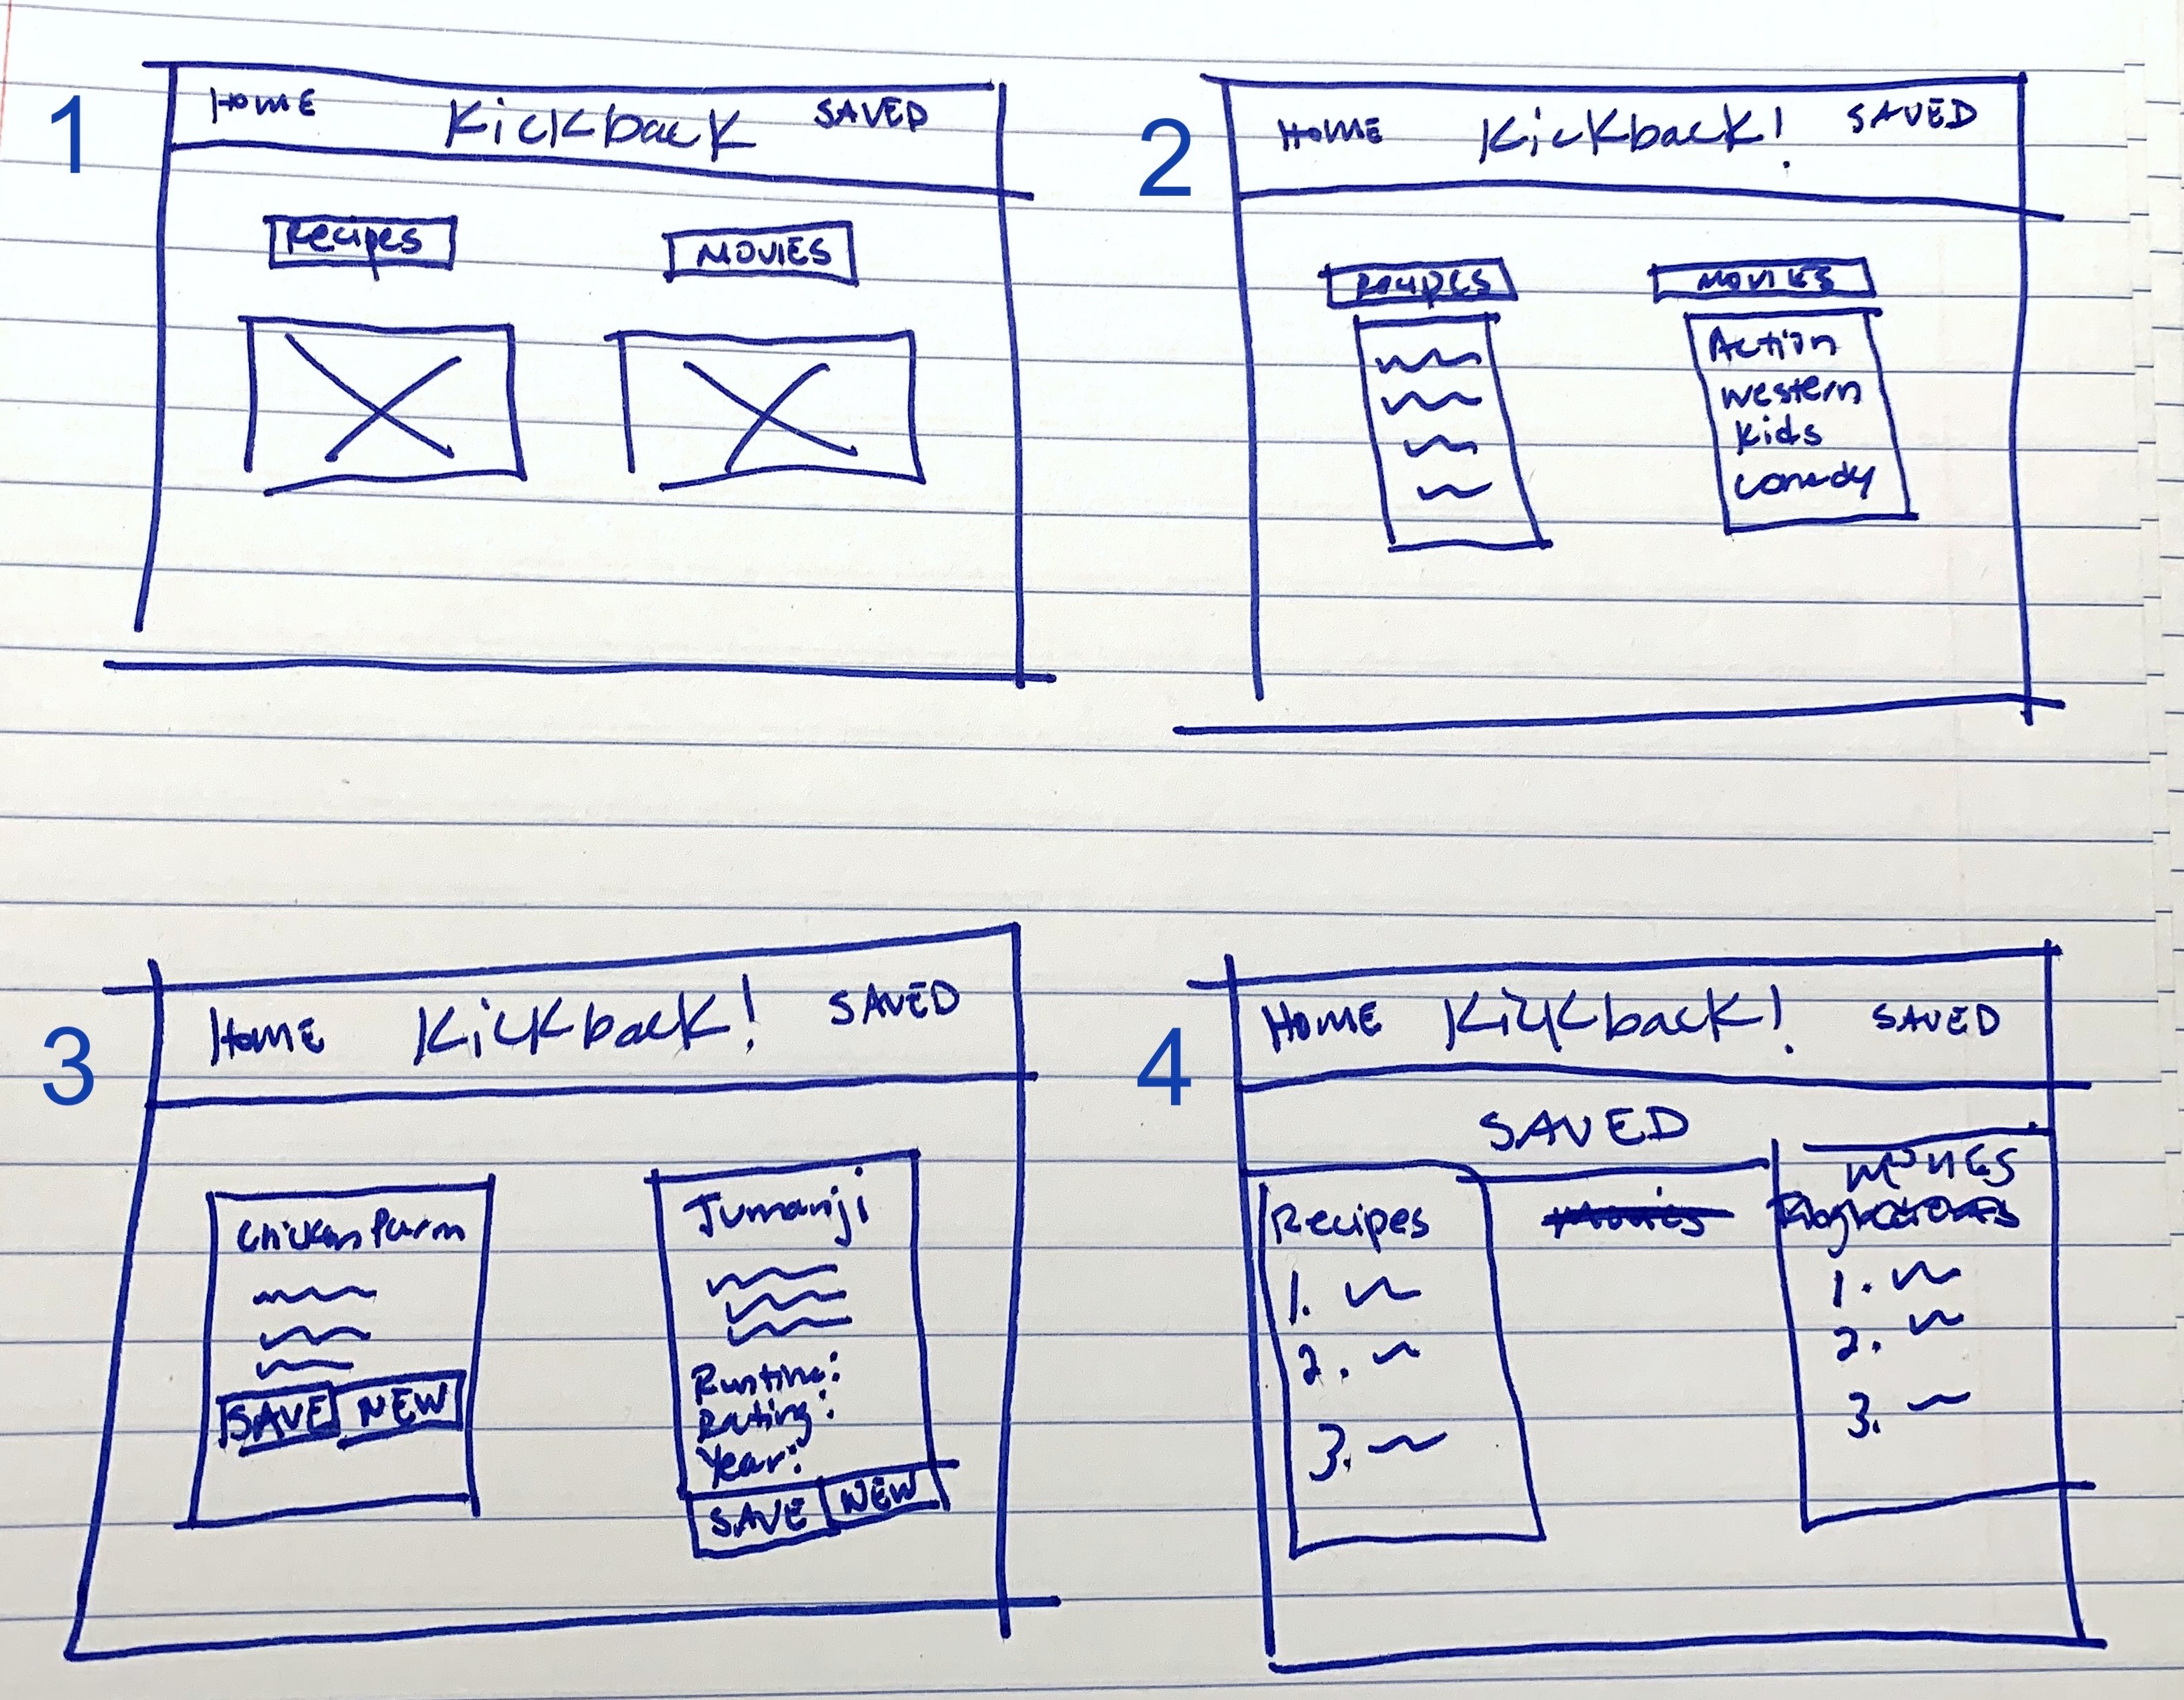 1
HOME Kickback SAVED
Recipes MOVIES
2
HOME Kickback! SAVED
Recipes MOVIES
Action
Western
Kids
Comedy
3
HOME Kickback! SAVED
Chicken Parm
SAVE NEW
Jumanji
Runtime:
Rating:
Year:
SAVE NEW
4
HOME Kickback! SAVED
SAVED
Recipes
1.
2.
3.
Movies
MOVIES
1.
2.
3.